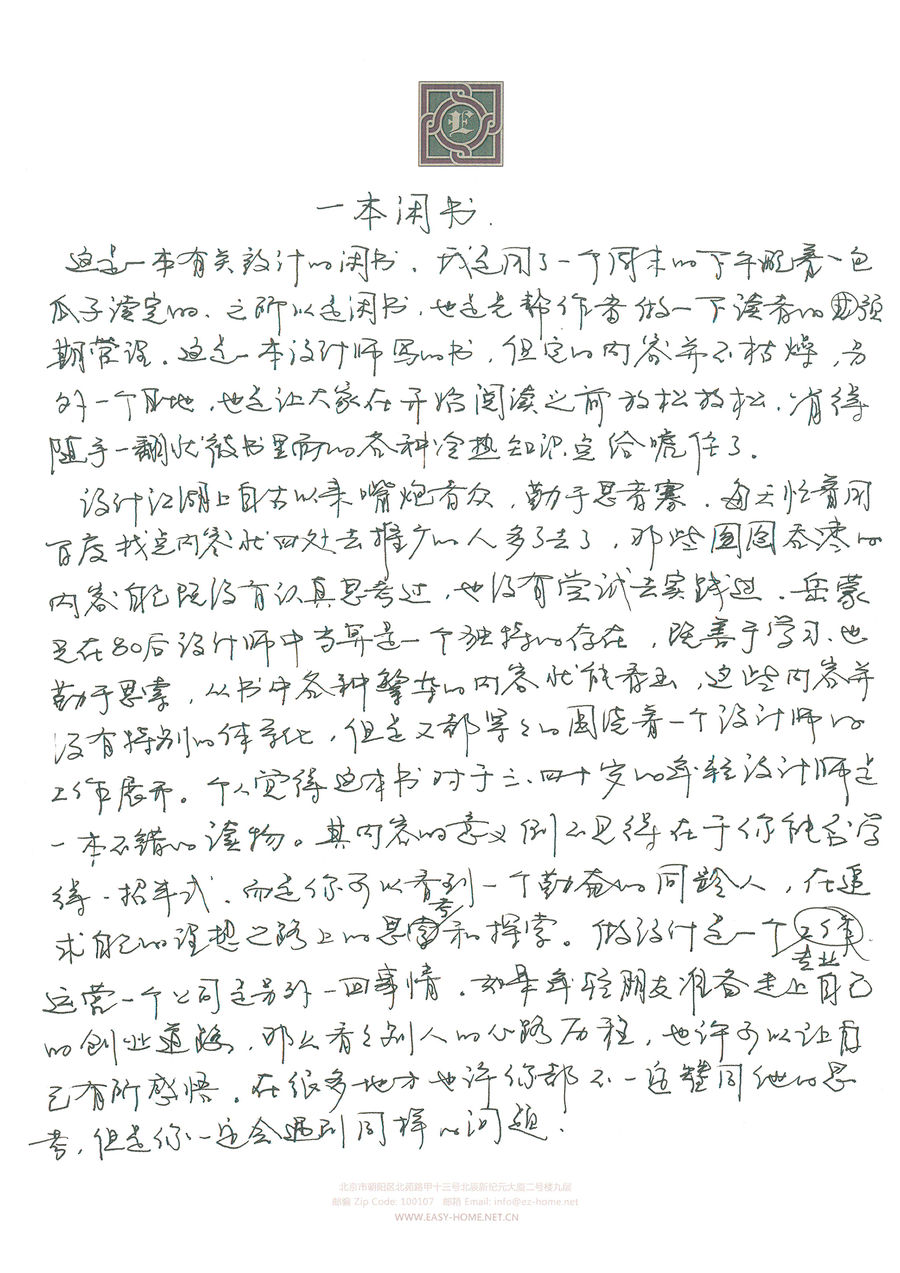 一本闲书.
这是一本有关设计的闲书．我是用了一个周末的下午脱着一包
瓜子读完的．之所以是闲书，也是先帮作者做一下读者的预
期管理．这是一本设计师写的书，但它的内容并不枯燥，另
外一个目地，也是让大家在开始阅读之前放松放松．省得
随手一翻就被书里面的各种冷热知识点给唬住了．
设计江湖上自古以来嘴炮者众，勤于思者寡．每天忙着用
百度找完内容就四处去推广的人多了去了，那些囫囵吞枣的
内容自己既没有认真思考过，也没有尝试去实践过．岳蒙
是在80后设计师中当算是一个独特的存在，既善于学习．也
勤于思索，从书中各种繁杂的内容就能看出，这些内容并
没有特别的体系化，但是又都紧紧的围绕着一个设计师的
工作展开。个人觉得这本书对于三．四十岁的年轻设计师是
一本不错的读物。其内容的意义倒不见得在于你能否学
得一招半式．而是你可以看到一个勤奋的同龄人，在追
求自己的理想之路上的思考和探索。做设计是一个专业．
运营一个公司是另外一回事情．如果年轻朋友准备走上自己
的创业道路，那么看看别人的心路历程，也许可以让自
己有所感悟．在很多地方也许你都不一定赞同他的思
考，但是你一定会遇到同样的问题．
北京市朝阳区北苑路甲十三号北辰新纪元大厦二号楼九层
邮编 Zip Code: 100107 邮箱 Email: info@ez-home.net
WWW.EASY-HOME.NET.CN